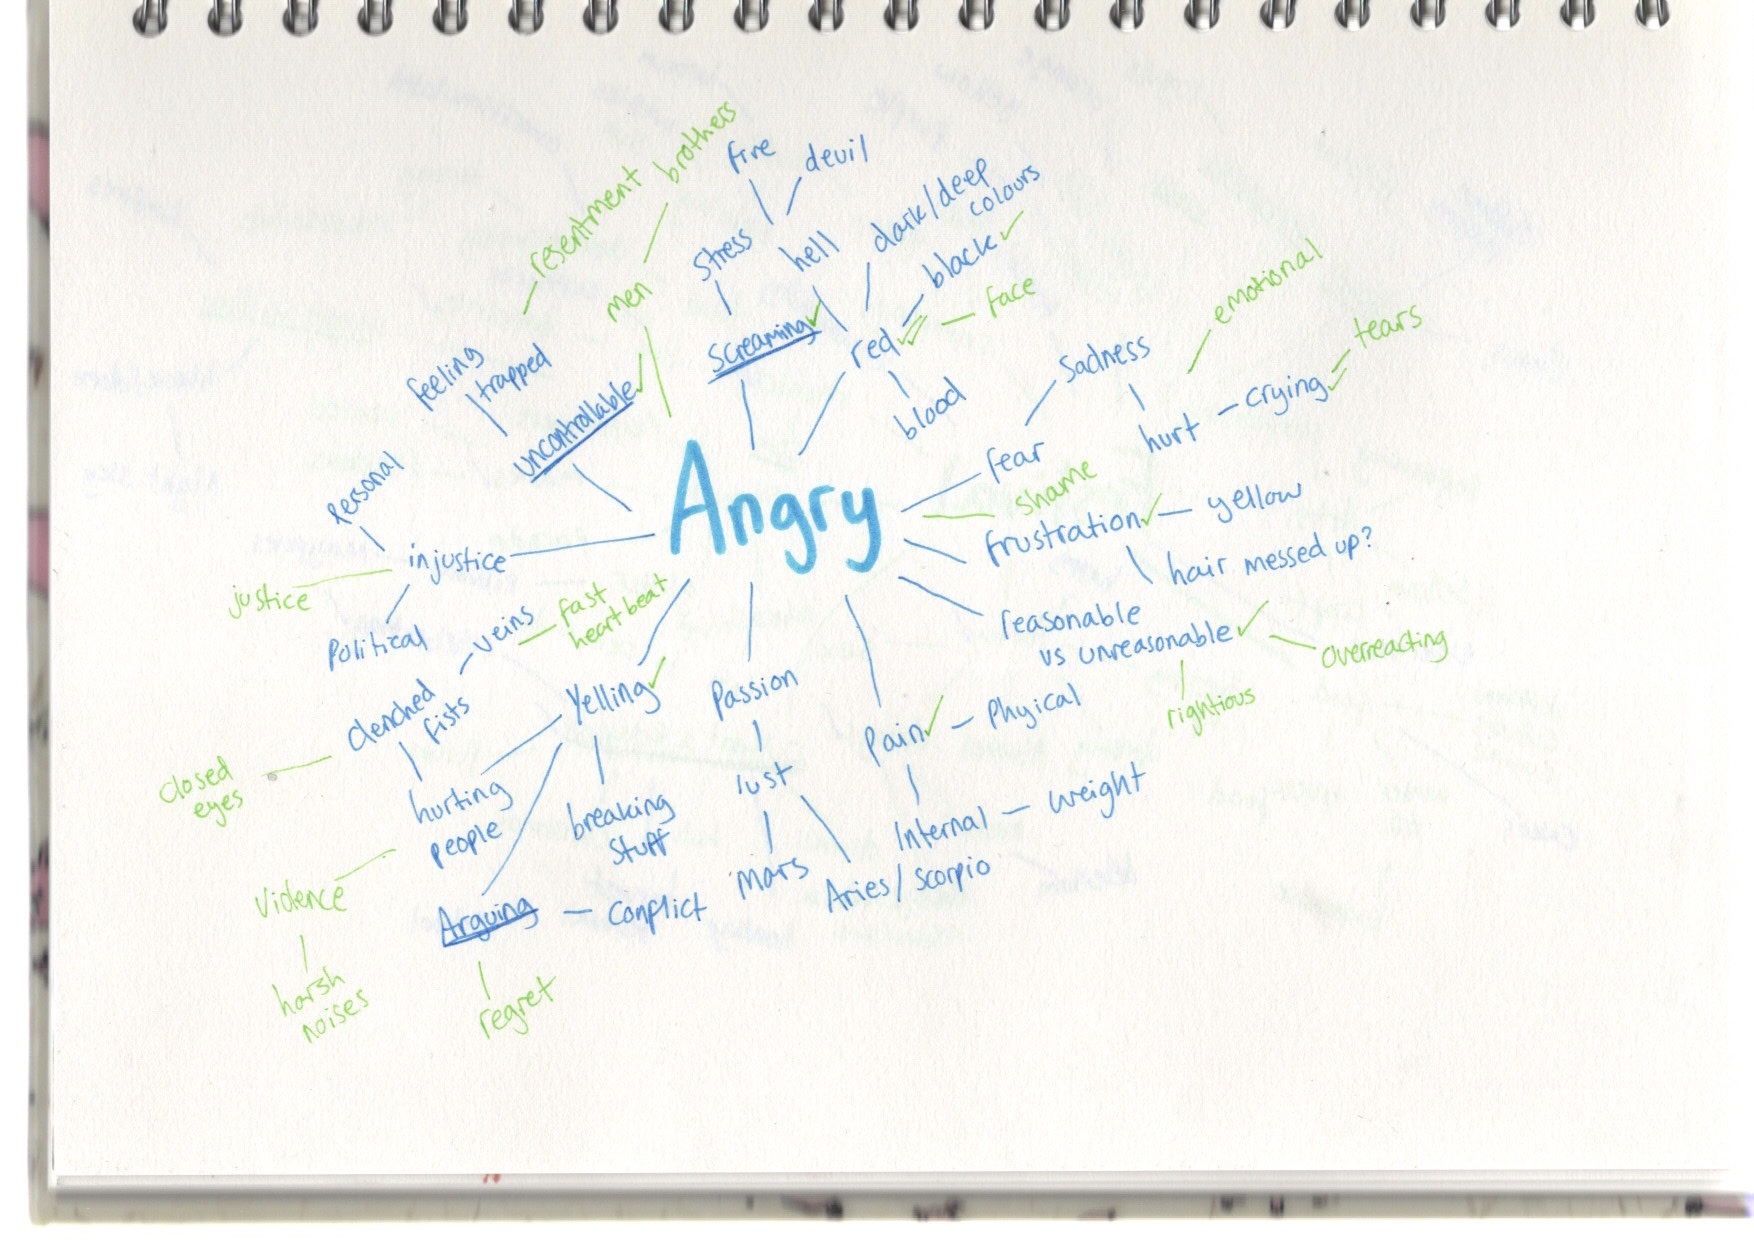 brothers
fire
devil
resentment
dark/deep
colours
stress
hell
black
men
face
emotional
tears
Screaming
red
Sadness
feeling
trapped
crying
uncontrollable
blood
hurt
fear
Personal
Angry
shame
yellow
frustration
injustice
hair messed up?
justice
fast
heart beat
veins
reasonable
vs unreasonable
Political
overreacting
clenched
fists
Yelling
Passion
Pain
Phyical
rightious
closed
eyes
hurting
people
breaking
stuff
lust
Internal
weight
Violence
Mars
Aries/scorpio
Arguing
conflict
harsh
noises
regret